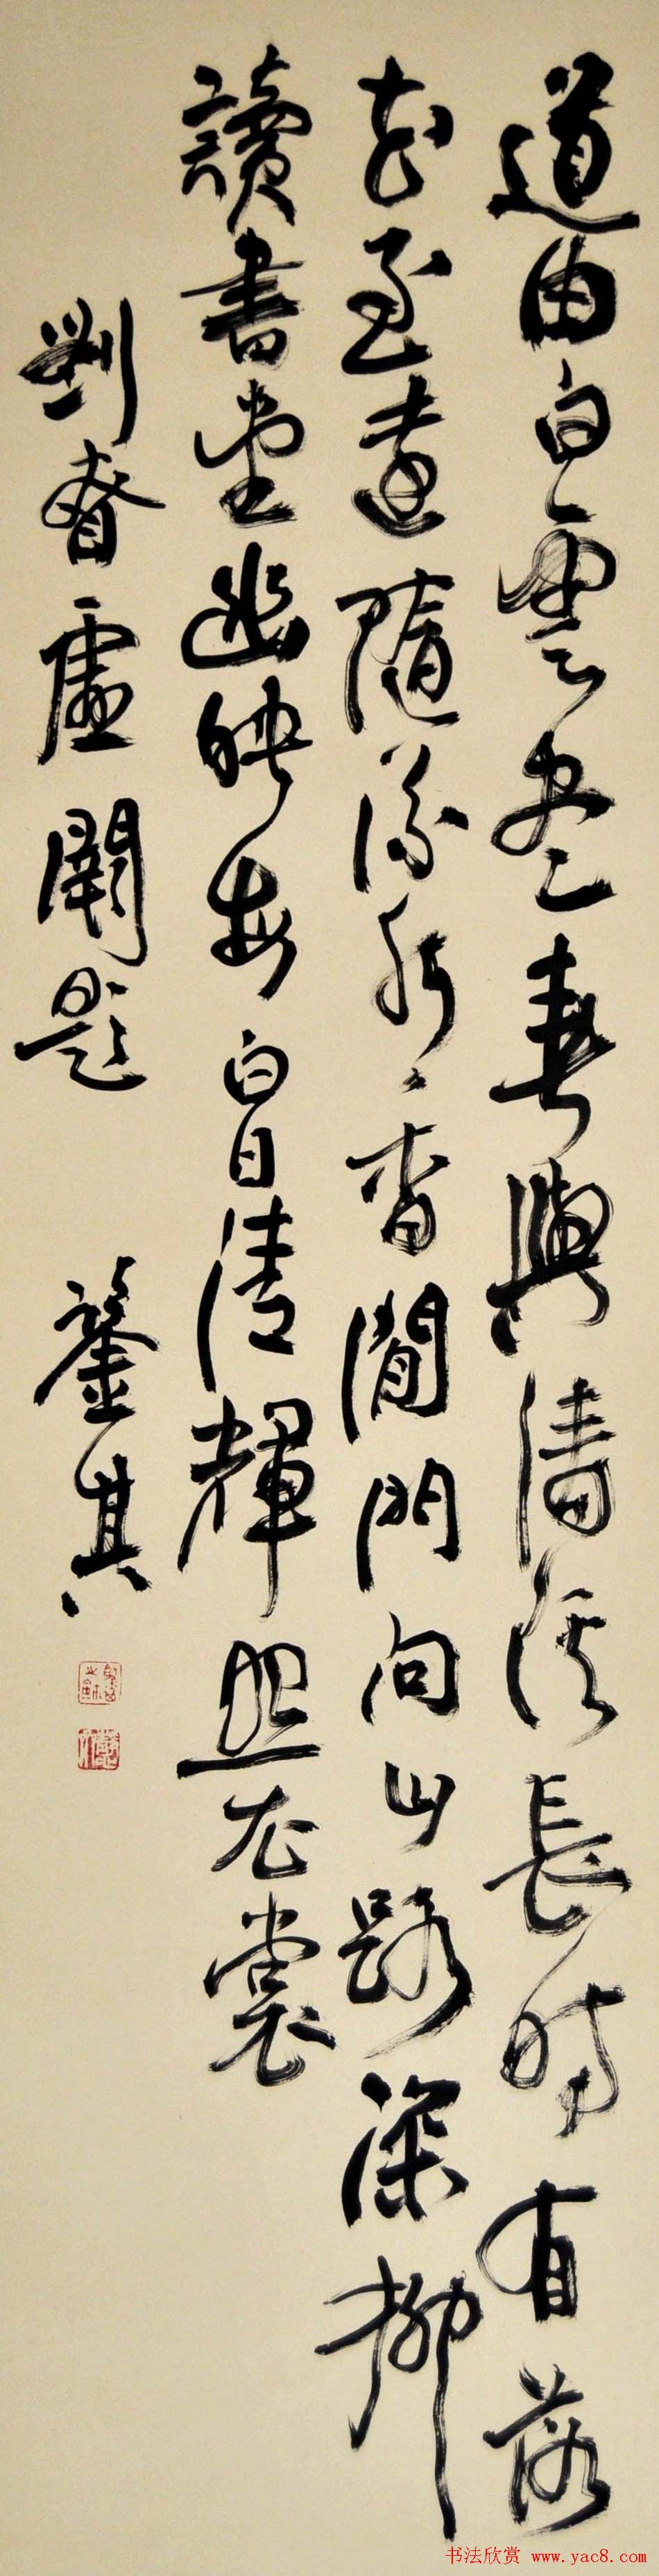 道由白雲盡春與清溪長時有落
花至遠隨流水香閒門向山路深柳
讀書堂幽映每白日清輝照衣裳
劉眘虛闕題 其
书法欣赏 www.yac8.com